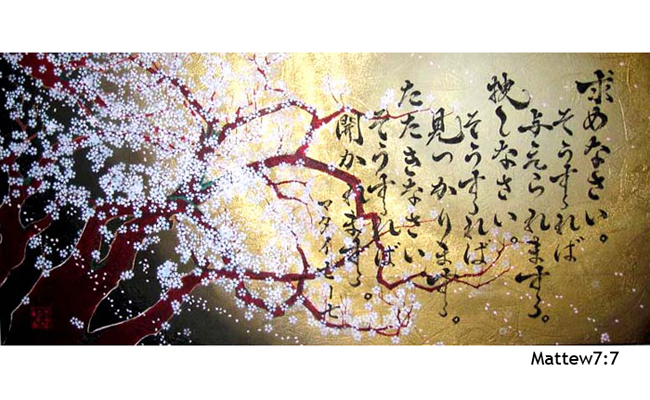 求めなさい。
そうすれば
与えられます。
捜しなさい。
そうすれば
見つかります。
たたきなさい
そうすれば
開かれます。
マタイ七ー七
Mattew7:7